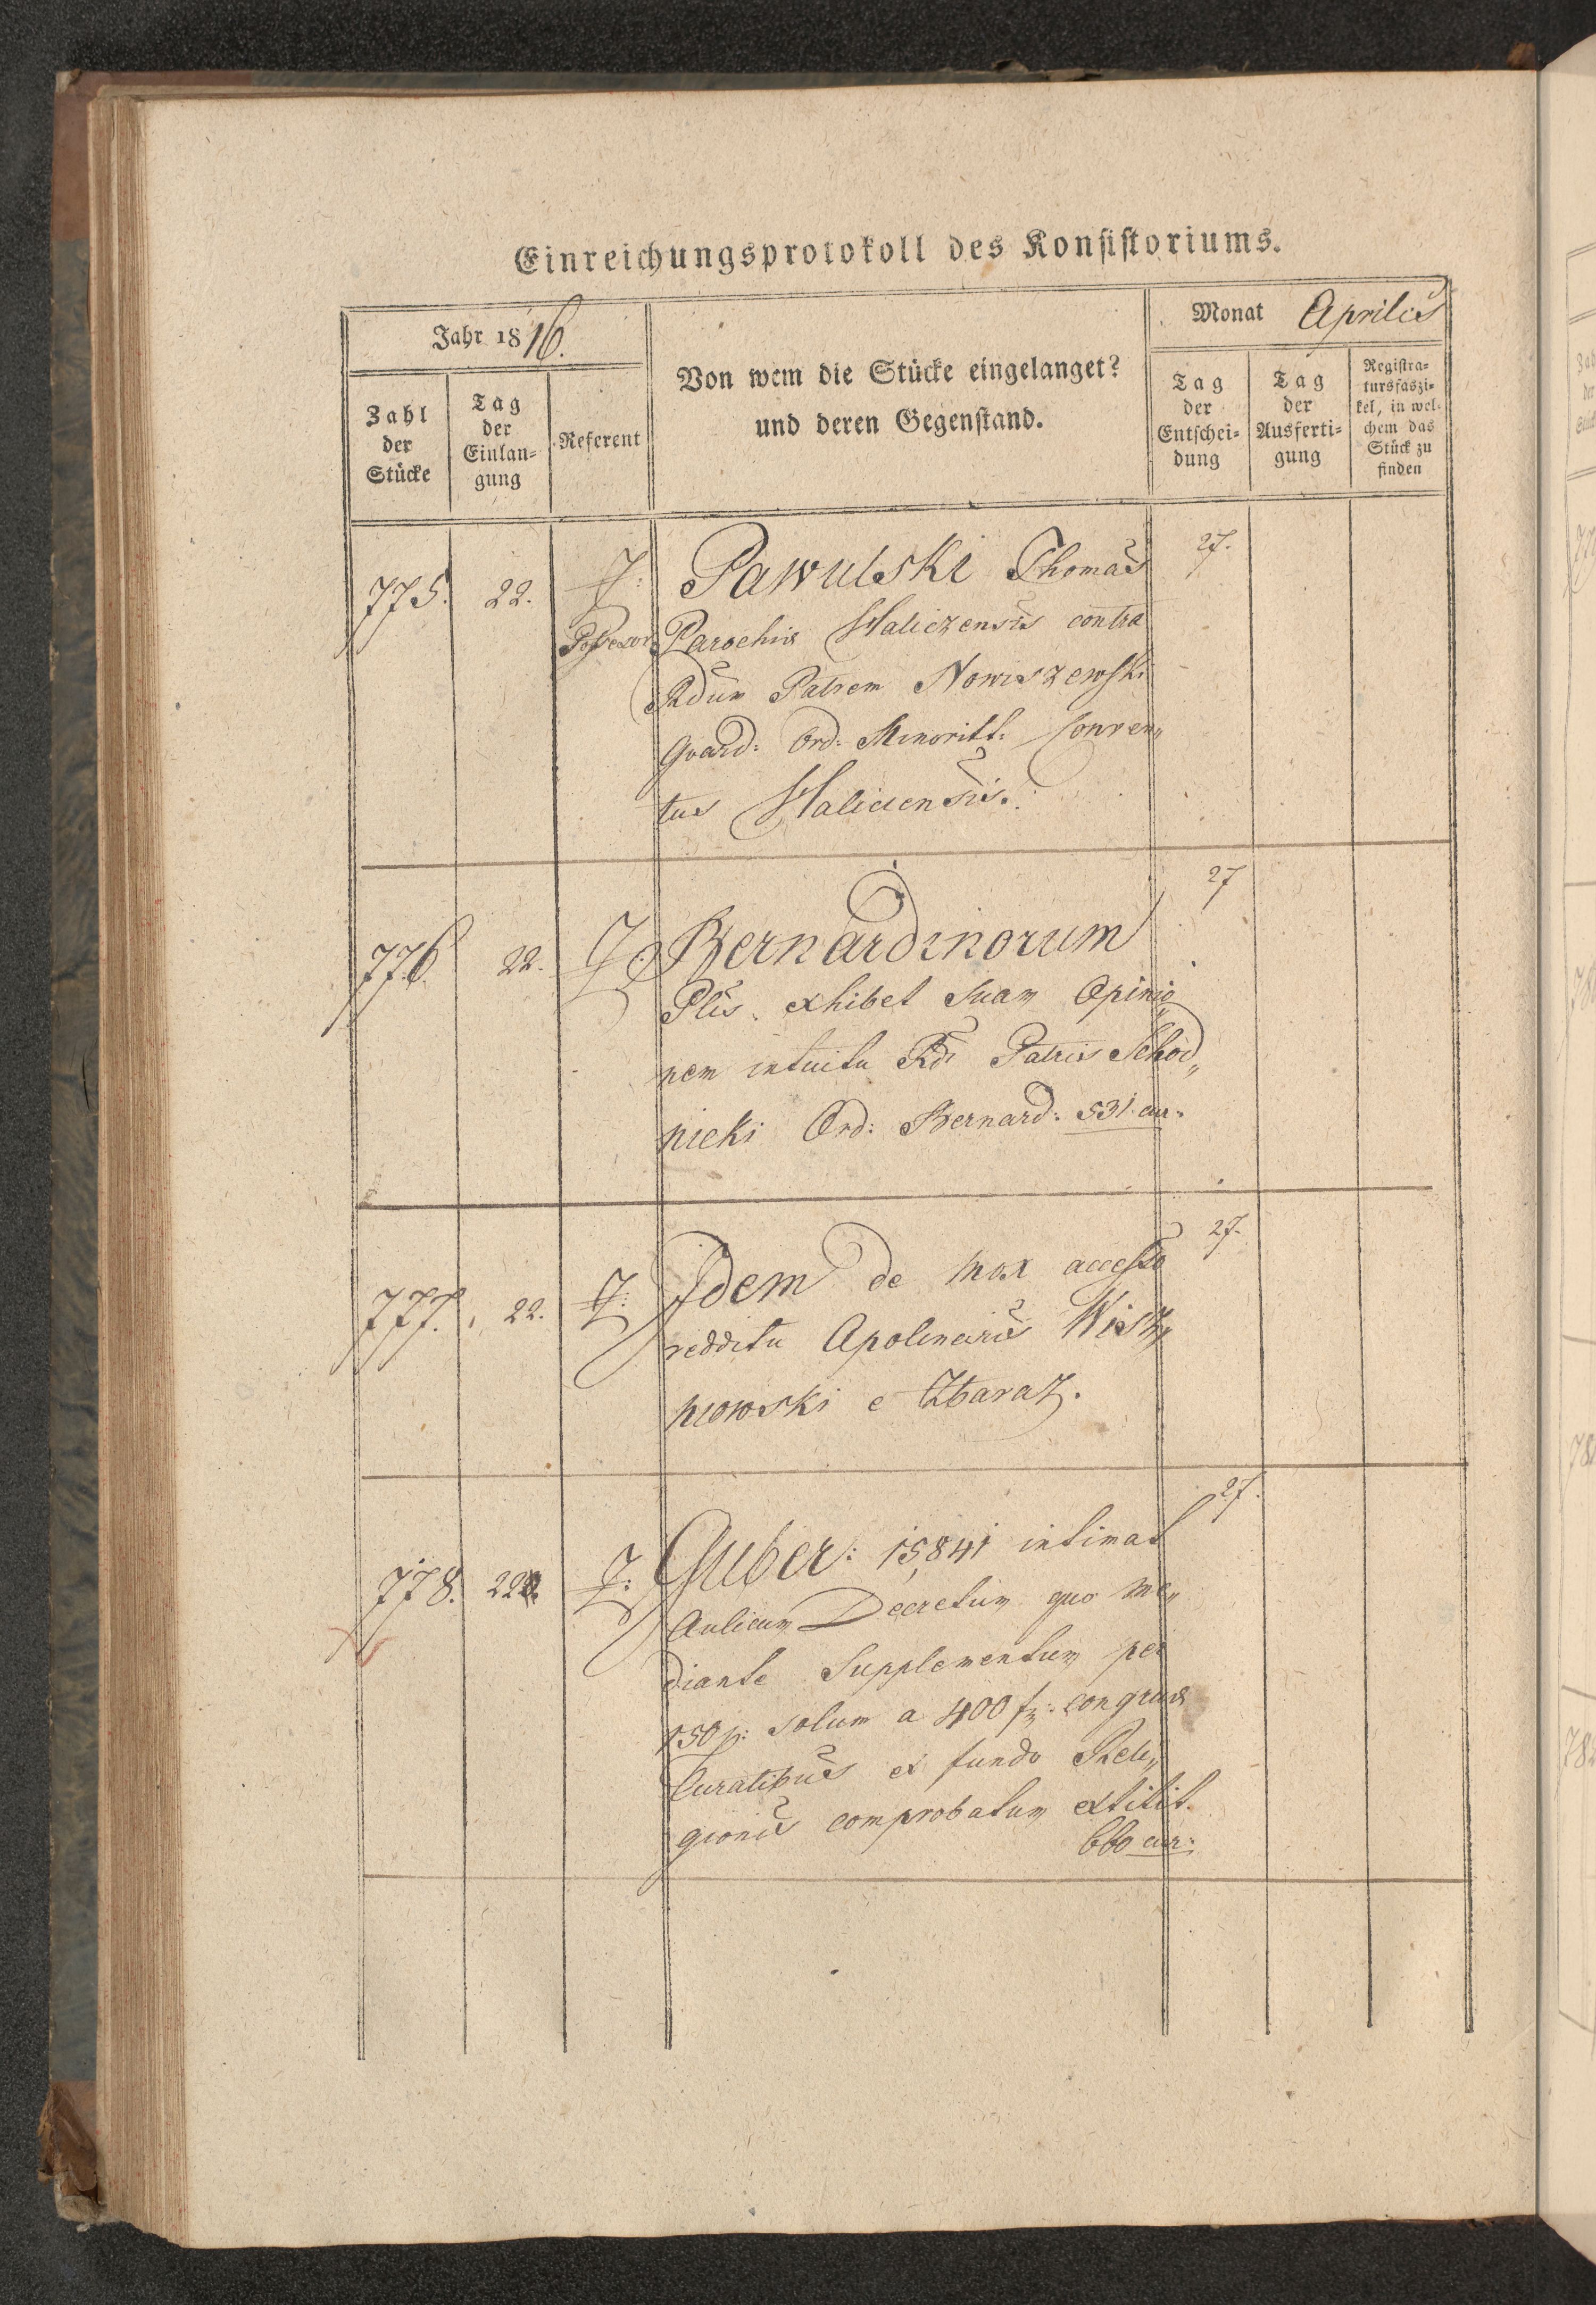 Einreichungsprotokoll des Konsistoriums.
Jahr 1816.
Monat Aprilis
Zahl der Stücke
Tag der Einlan=gung
Referent
Von wem die Stücke eingelanget?
und deren Gegenstand.
Tag der Entschei=dung
Tag der Ausferti=gung
Registra=tursfaszi=kel, in wel=chem das Stück zu finden
775. 22. Pawulski Thomas 27.
Parochis Haliczensis contra
Rdum Patrem Nowiszewski
Guard: Ord: Minoritt: Conven„
tus Haliciensis.
776. 22. Bernardinorum 27
Plis exhibet suam Opinio„
nem intuitu Rdi Patris Schod„
nicki Ord: Bernard: 531 cur:
777. 22. Idem de mox accesso 27.
redditu Apolinaris Wisz„
niowski e Zbaraz.
778. 22. Guber: 15,841 intimat 27.
Aulicum Decretum quo me„
diante Supplementum per
150 f: solum a 400 fr: congruae
Curatibus ex fundo Reli„
gionis comprobatum extitit.
660 cur: